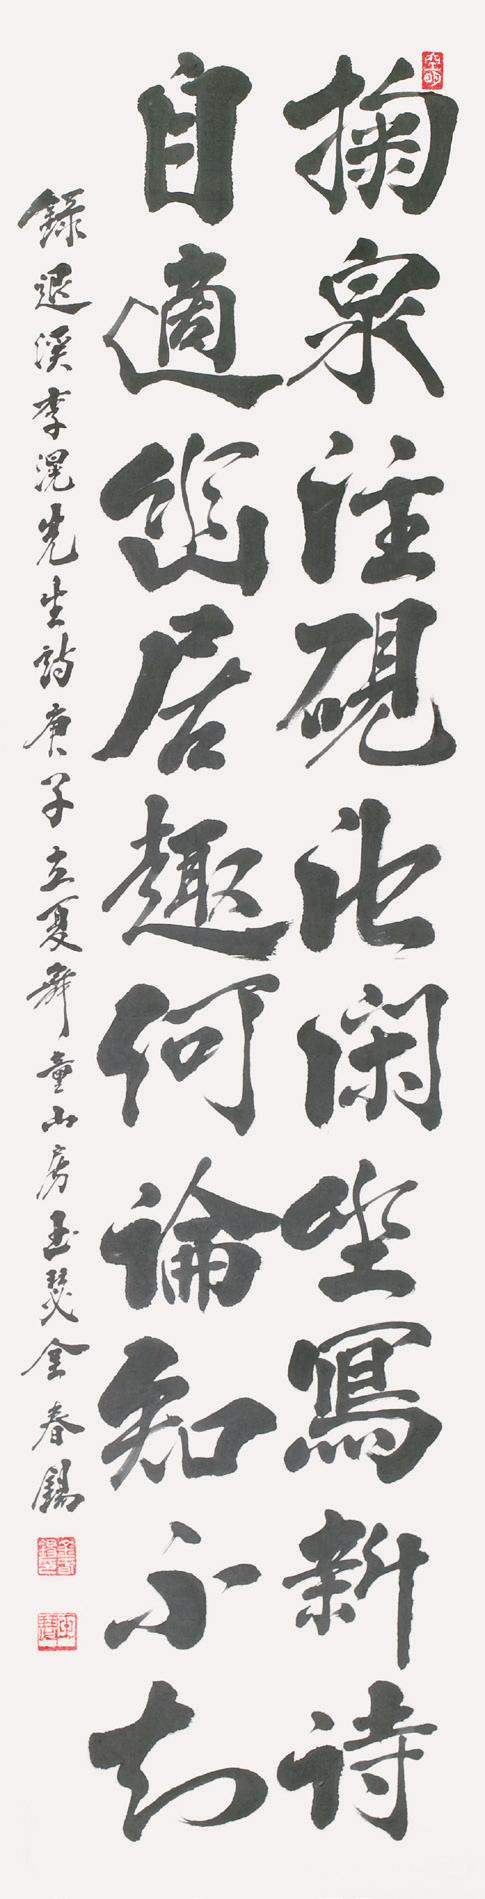 掬泉注硯池閑坐寫新詩
自適幽居趣何論知不知
錄退溪李滉先生詩庚子立夏舞童山房玉瑟金春錫